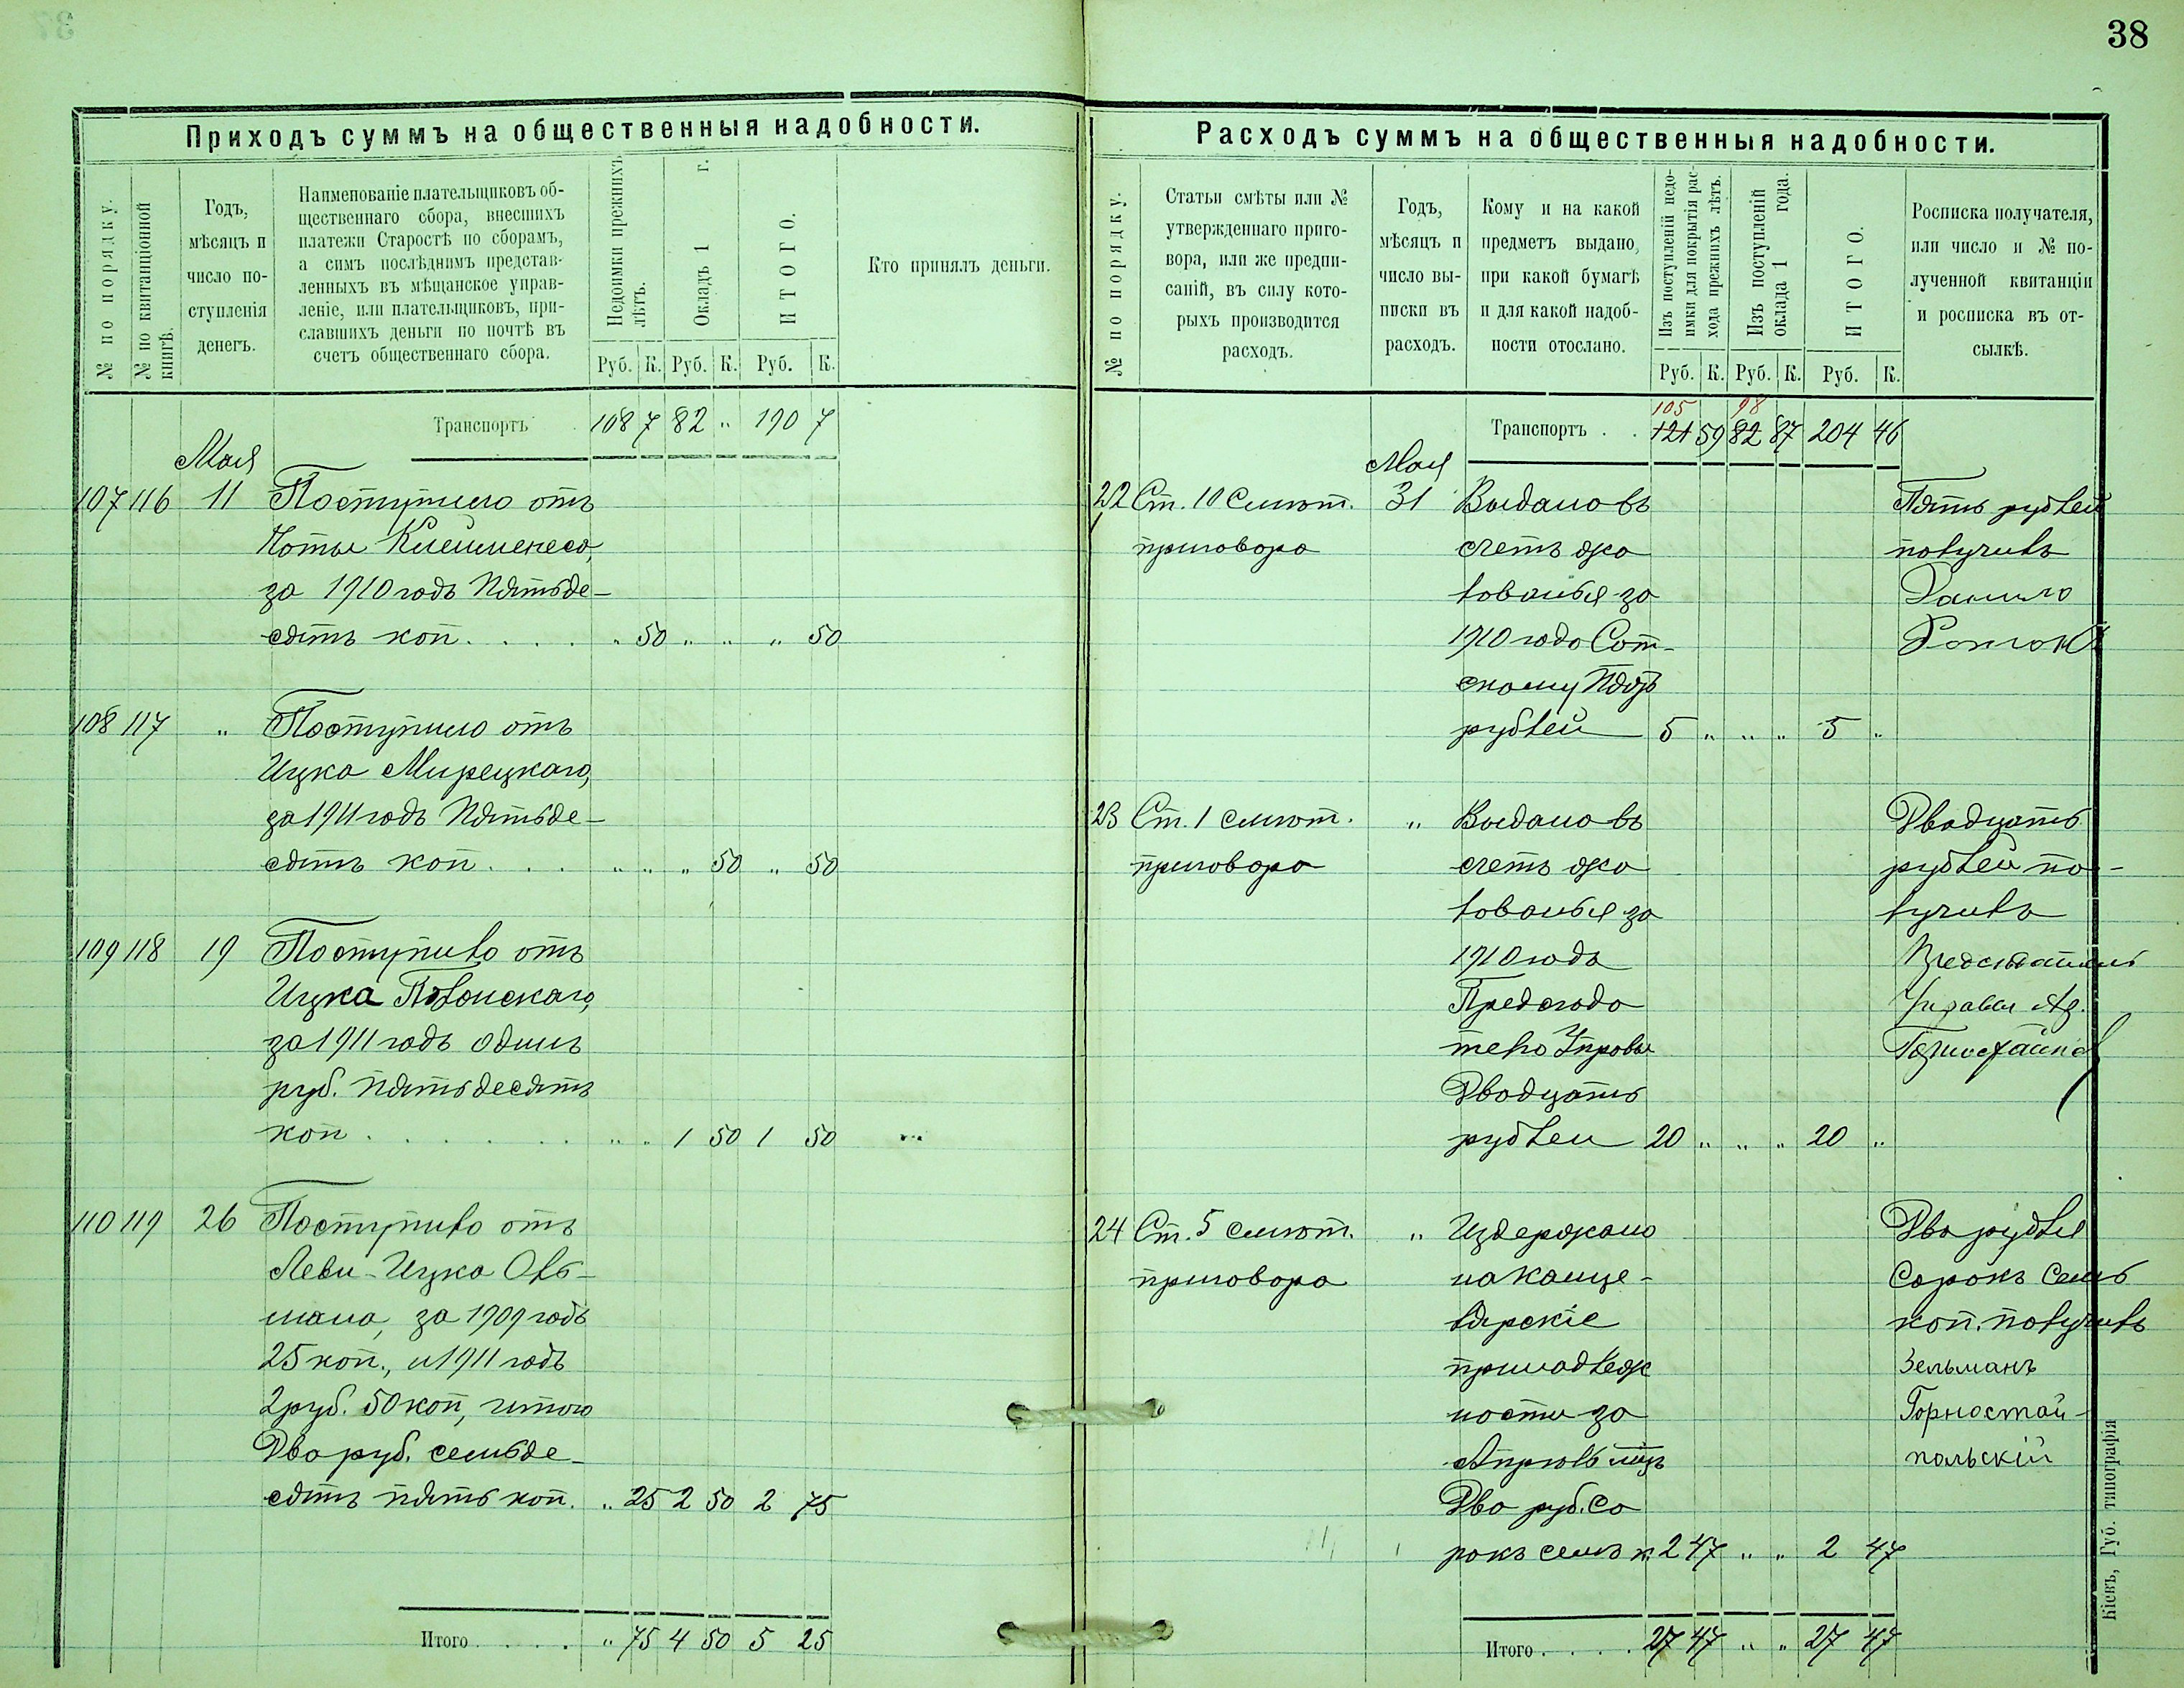 38
Приходъ суммъ на общественныя надобности.
№ по порядку.
№ по квитанціонной книгѣ.
Годъ,
мѣсяцъ и
число по-
ступленія
денегъ.
Наименованіе плательщиковъ об-
щественнаго сбора, внесшихъ
платежи Старостѣ по сборамъ,
а симъ послѣднимъ представ-
ленныхъ въ мѣщанское управ-
леніе, или плательщиковъ, при-
славшихъ деньги по почтѣ въ
счетъ общественнаго сбора.
Недоимки прежнихъ
лѣтъ.
Окладъ 1 г.
ИТОГО.
Кто принялъ деньги.
Руб. К. Руб. К. Руб. К.
Транспортъ 108 7 82 " 190 7
Мая
107 116 11 Поступило отъ
за 1910 годъ Пятьде-
сять коп. . . . . " 50 " " " 50
108 117 " Поступило отъ
Ицка Мирецкаго,
за 1911 годъ Пятьде-
сять коп. . . . " " " 50 " 50
109 118 19 Поступило отъ
Ицка Полонскаго,
за 1911 годъ одинъ
руб. пятьдесять
коп. . . . . . . " " 1 50 1 50 "
110 119 26 Поступило отъ
Леви-Ицка Оль-
шана, за 1909 годъ
25 коп., и 1911 годъ
2 руб. 50 коп, итого
Два руб. семьде-
сять пять коп. " 25 2 50 2 75
Итого . . . . " 75 4 50 5 25
Расходъ суммъ на общественныя надобности.
№ по порядку.
Статьи смѣты или №
утвержденнаго приго-
вора, или же предпи-
саній, въ силу кото-
рыхъ производится
расходъ.
Годъ,
мѣсяцъ и
число вы-
писки въ
расходъ.
Кому и на какой
предметъ выдано,
при какой бумагѣ
и для какой надоб-
ности отослано.
Изъ поступленій недо-
имки для покрытія рас-
хода прежнихъ лѣтъ.
Изъ поступленій
оклада 1 года.
ИТОГО.
Росписка получателя,
или число и № по-
лученной квитанціи
и росписка въ от-
сылкѣ.
Руб. К. Руб. К. Руб. К.
105 98
Транспортъ . . 121 59 82 87 204 46
Мая
22 Ст. 10 смѣт. 31 Выдано въ Пять рублей
приговора счетъ жа получилъ
лованья за Данило
1910 года Сот-
скому Пять
рублей 5 " " " 5 "
23 Ст. 1 смѣт. " Выдано въ Двадцать
приговора счетъ жа рублей по-
лованья за лучилъ
1910 года Председатель
Председа Управы
телю Управы
Двадцать
рублей 20 " " " 20 "
24 Ст. 5 смѣт. " Издержано Два рубля
приговора на канце- Сорокъ Семь
лярскіе коп. получилъ
принадлеж Зельманъ
ности за Горностай-
Апрѣль мцъ польскій
Два руб. Со
рокъ семь к. 2 47 " " 2 47
Итого . . . . 27 47 " " 27 47
Кіевъ, Губ. типографія